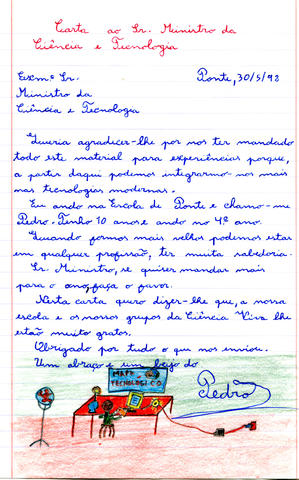 Carta ao Sr. Ministro da
Ciência e Tecnologia
Exmº Sr. Ponte, 30/5/98
Ministro da
Ciência e Tecnologia
Queria agradecer-lhe por nos ter mandado
todo este material para experiências porque,
a partir daqui podemos integrarmo-nos mais
nas tecnologias modernas.
Eu ando na Escola de Ponte e chamo-me
Pedro. Tenho 10 anos e ando no 4º ano.
Quando formos mais velhos podemos estar
em qualquer profissão, ter muita sabedoria.
Sr. Ministro, se quiser mandar mais
para o ano, faça o favor.
Nesta carta quero dizer-lhe que, a nossa
escola e os nossos grupos da Ciência Viva lhe
estão muito gratos.
Obrigado por tudo o que nos enviou.
Um abraço e um beijo do
Pedro
MAPA
TECNOLÓGICO